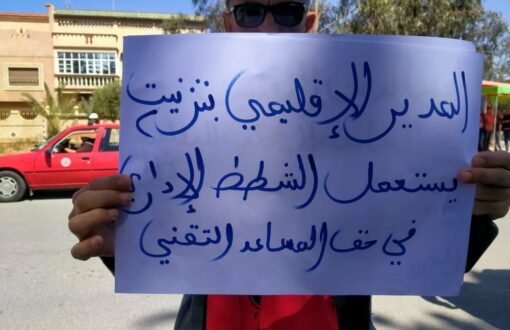 المدير الإقليمي بتزنيت
يستعمل الشطط الإداري
في حق المساعد التقني